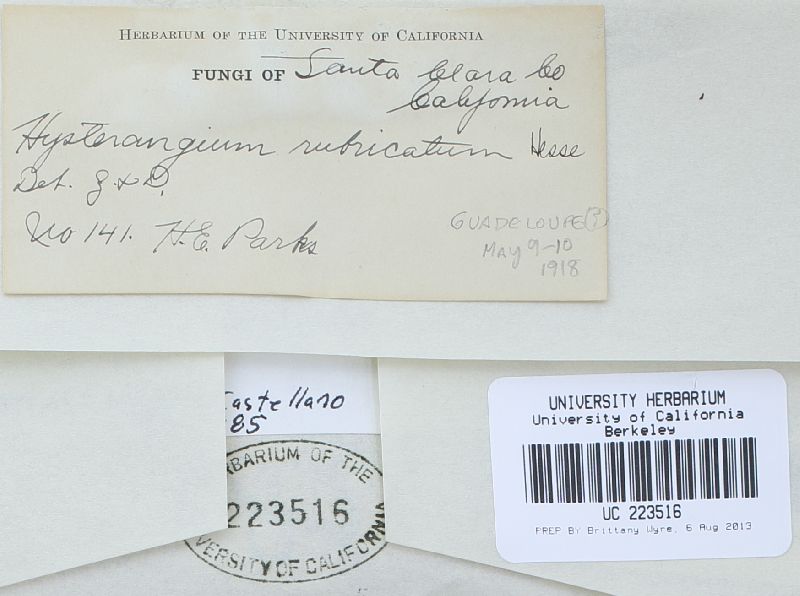 HERBARIUM OF THE UNIVERSITY OF CALIFORNIA
FUNGI OF Santa Clara Co
California
Hysterangium rubricatum Hesse
Det. Z & D.
No 141. H.E. Parks
GUADELOUPE(?)
MAY 9-10
1918
Castellano
85
HERBARIUM OF THE
223516
UNIVERSITY OF CALIFORNIA
UNIVERSITY HERBARIUM
University of California
Berkeley
UC 223516
PREP BY Brittany Wyre, 6 Aug 2013